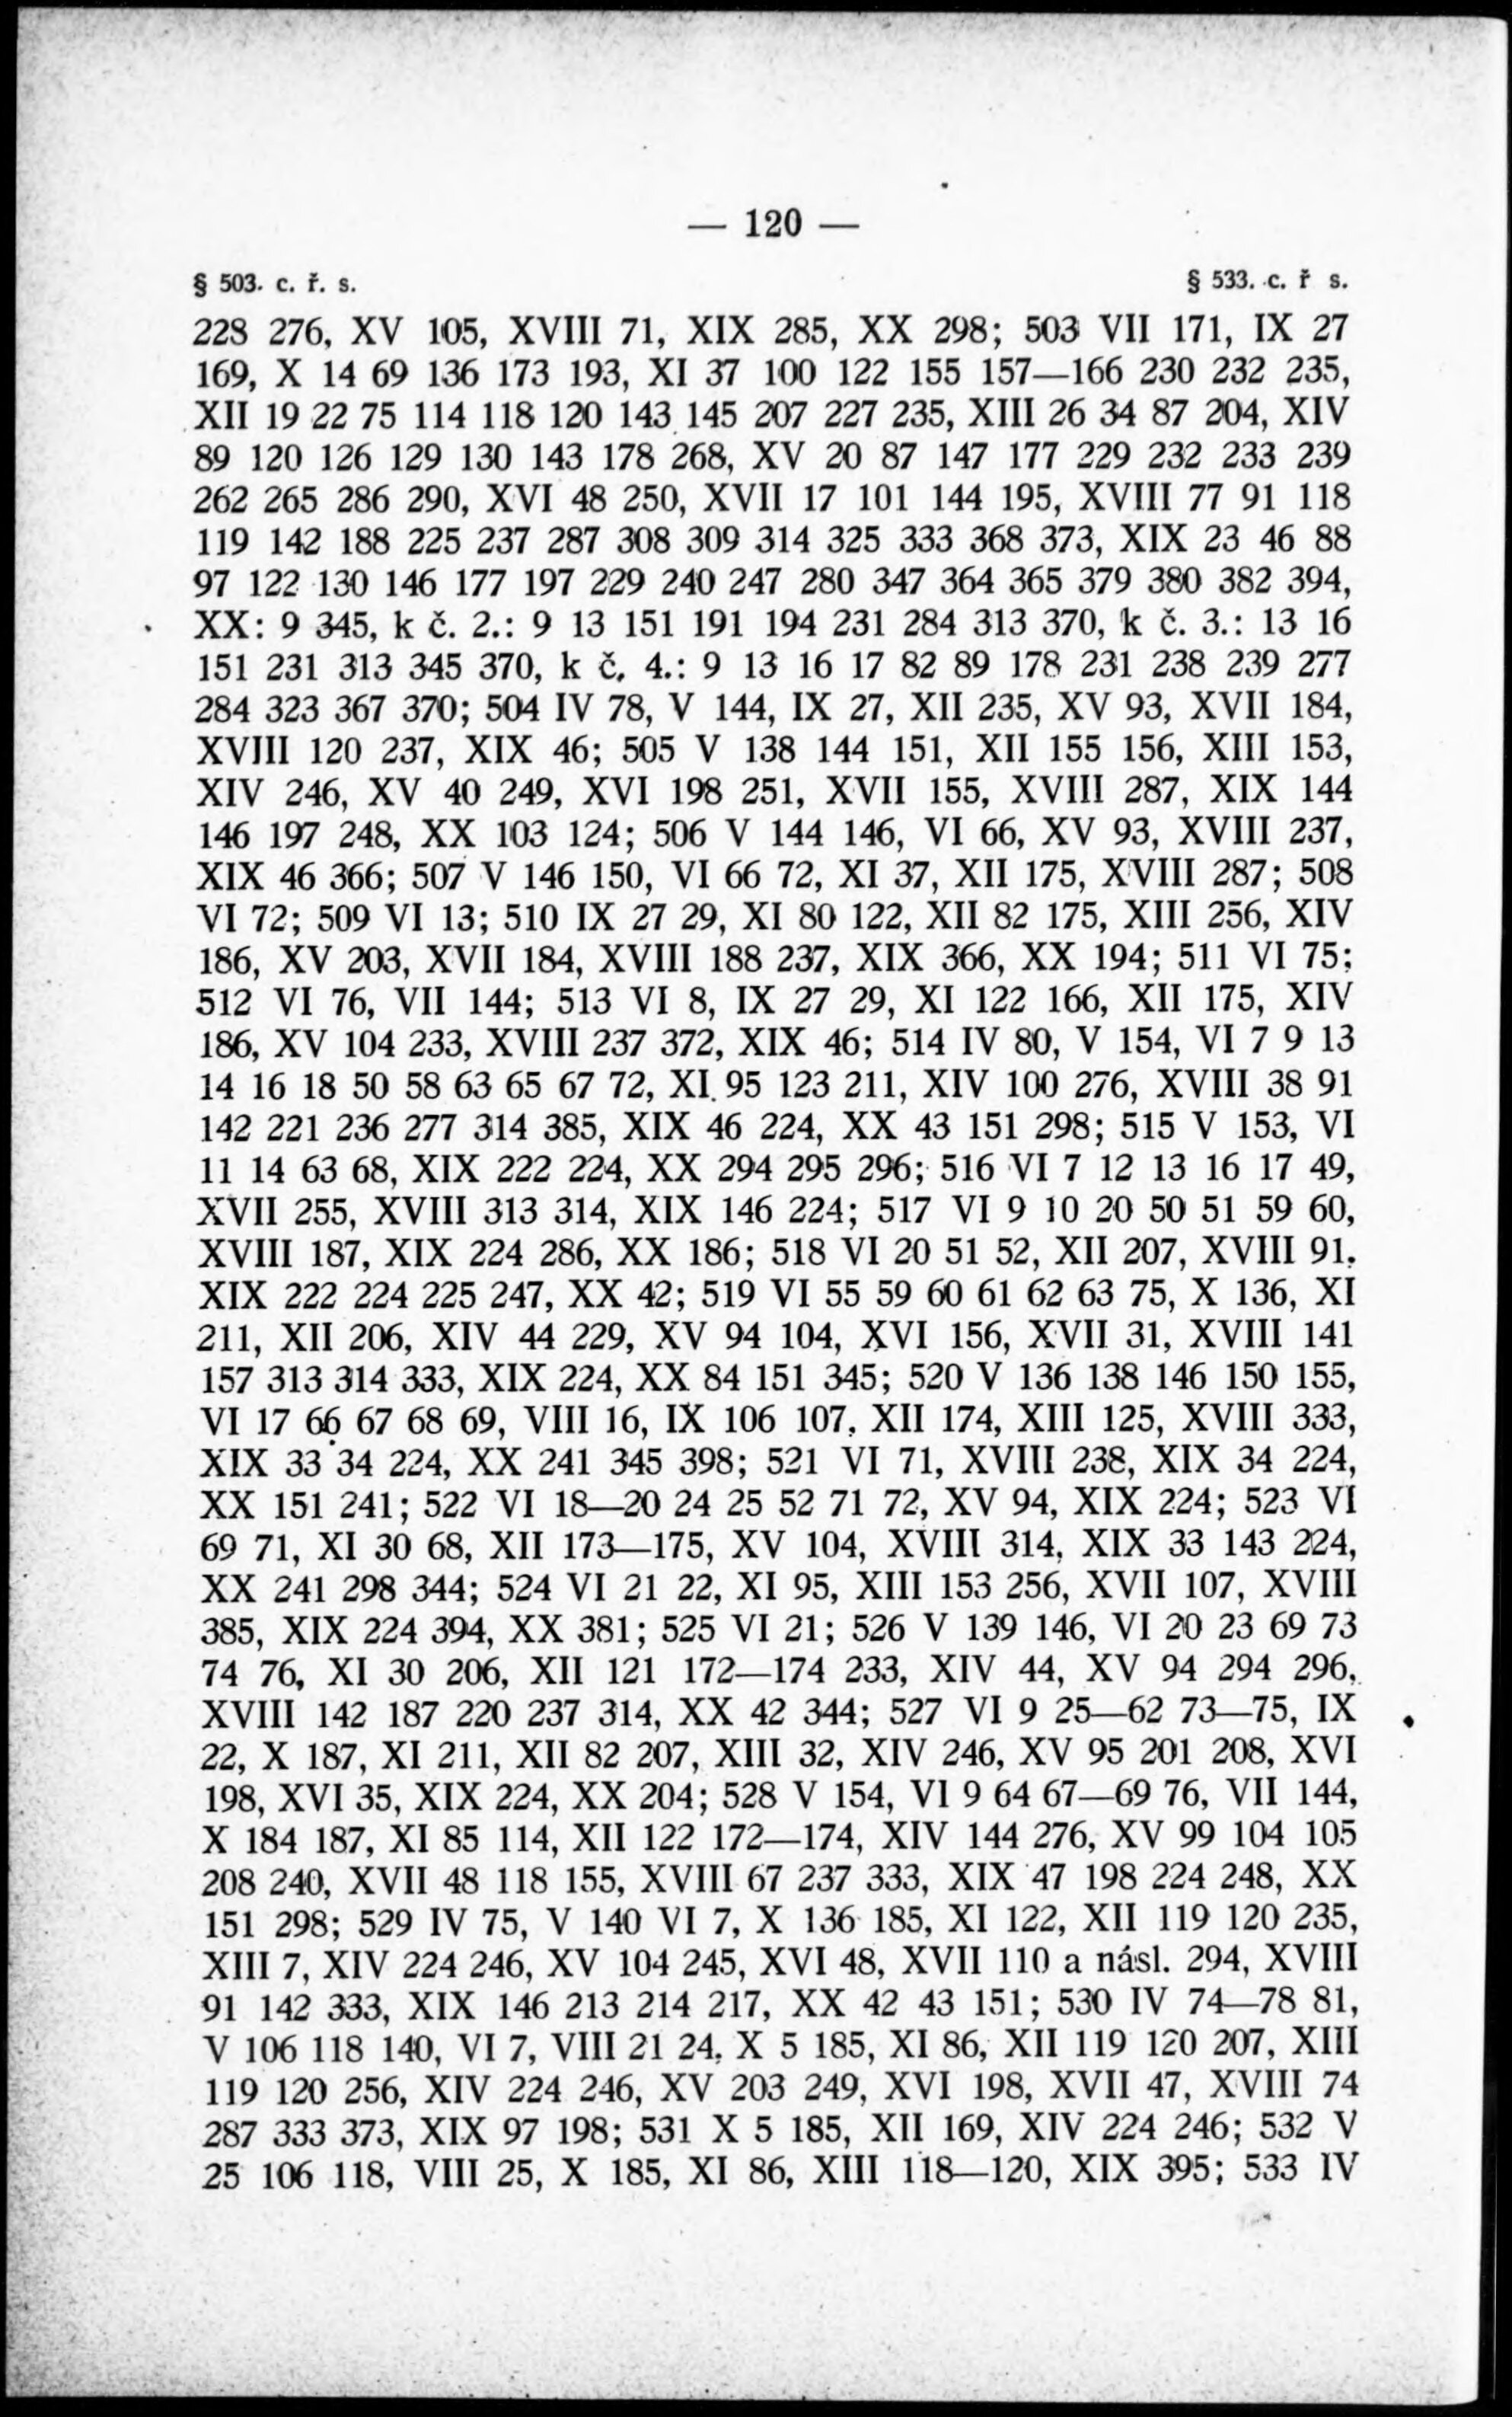 — 120 —
§ 503. c. ř. s. § 533. c. ř s.
228 276, XV 105, XVIII 71, XIX 285, XX 298; 503 VII 171, IX 27
169, X 14 69 136 173 193, XI 37 100 122 155 157—166 230 232 235,
XII 19 22 75 114 118 120 143 145 207 227 235, XIII 26 34 87 204, XIV
89 120 126 129 130 143 178 268, XV 20 87 147 177 229 232 233 239
262 265 286 290, XVI 48 250, XVII 17 101 144 195, XVIII 77 91 118
119 142 188 225 237 287 308 309 314 325 333 368 373, XIX 23 46 88
97 122 130 146 177 197 229 240 247 280 347 364 365 379 380 382 394,
XX: 9 345, k č. 2.: 9 13 151 191 194 231 284 313 370, k č. 3.: 13 16
151 231 313 345 370, k č. 4.: 9 13 16 17 82 89 178 231 238 239 277
284 323 367 370; 504 IV 78, V 144, IX 27, XII 235, XV 93, XVII 184,
XVIII 120 237, XIX 46; 505 V 138 144 151, XII 155 156, XIII 153,
XIV 246, XV 40 249, XVI 198 251, XVII 155, XVIII 287, XIX 144
146 197 248, XX 103 124; 506 V 144 146, VI 66, XV 93, XVIII 237,
XIX 46 366; 507 V 146 150, VI 66 72, XI 37, XII 175, XVIII 287; 508
VI 72; 509 VI 13; 510 IX 27 29, XI 80 122, XII 82 175, XIII 256, XIV
186, XV 203, XVII 184, XVIII 188 237, XIX 366, XX 194; 511 VI 75;
512 VI 76, VII 144; 513 VI 8, IX 27 29, XI 122 166, XII 175, XIV
186, XV 104 233, XVIII 237 372, XIX 46; 514 IV 80, V 154, VI 7 9 13
14 16 18 50 58 63 65 67 72, XI 95 123 211, XIV 100 276, XVIII 38 91
142 221 236 277 314 385, XIX 46 224, XX 43 151 298; 515 V 153, VI
11 14 63 68, XIX 222 224, XX 294 295 296; 516 VI 7 12 13 16 17 49,
XVII 255, XVIII 313 314, XIX 146 224; 517 VI 9 10 20 50 51 59 60,
XVIII 187, XIX 224 286, XX 186; 518 VI 20 51 52, XII 207, XVIII 91,
XIX 222 224 225 247, XX 42; 519 VI 55 59 60 61 62 63 75, X 136, XI
211, XII 206, XIV 44 229, XV 94 104, XVI 156, XVII 31, XVIII 141
157 313 314 333, XIX 224, XX 84 151 345; 520 V 136 138 146 150 155,
VI 17 66 67 68 69, VIII 16, IX 106 107, XII 174, XIII 125, XVIII 333,
XIX 33 34 224, XX 241 345 398; 521 VI 71, XVIII 238, XIX 34 224,
XX 151 241; 522 VI 18—20 24 25 52 71 72, XV 94, XIX 224; 523 VI
69 71, XI 30 68, XII 173—175, XV 104, XVIII 314, XIX 33 143 224,
XX 241 298 344; 524 VI 21 22, XI 95, XIII 153 256, XVII 107, XVIII
385, XIX 224 394, XX 381; 525 VI 21; 526 V 139 146, VI 20 23 69 73
74 76, XI 30 206, XII 121 172—174 233, XIV 44, XV 94 294 296,
XVIII 142 187 220 237 314, XX 42 344; 527 VI 9 25—62 73—75, IX
22, X 187, XI 211, XII 82 207, XIII 32, XIV 246, XV 95 201 208, XVI
198, XVI 35, XIX 224, XX 204; 528 V 154, VI 9 64 67—69 76, VII 144,
X 184 187, XI 85 114, XII 122 172—174, XIV 144 276, XV 99 104 105
208 240, XVII 48 118 155, XVIII 67 237 333, XIX 47 198 224 248, XX
151 298; 529 IV 75, V 140 VI 7, X 136 185, XI 122, XII 119 120 235,
XIII 7, XIV 224 246, XV 104 245, XVI 48, XVII 110 a násl. 294, XVIII
91 142 333, XIX 146 213 214 217, XX 42 43 151; 530 IV 74—78 81,
V 106 118 140, VI 7, VIII 21 24, X 5 185, XI 86, XII 119 120 207, XIII
119 120 256, XIV 224 246, XV 203 249, XVI 198, XVII 47, XVIII 74
287 333 373, XIX 97 198; 531 X 5 185, XII 169, XIV 224 246; 532 V
25 106 118, VIII 25, X 185, XI 86, XIII 118—120, XIX 395; 533 IV